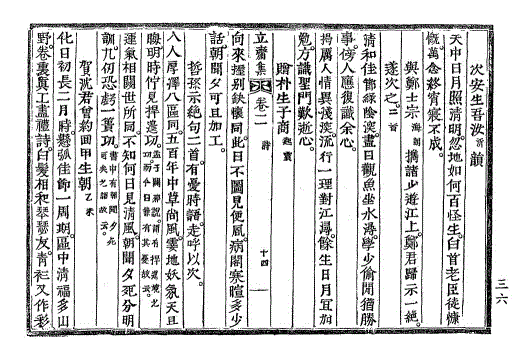 次安生吾汝韻
天中日月照淸明忽地如何百怪生白首老臣徒慷
慨萬念終宵寢不成
與鄭士宗携諸少遊江上鄭君歸示一絶
遂次之二首
淸和佳節綠陰濃盡日觀魚坐水潯學少偸閒猶勝
事傍人應復識余心
揚厲人情異淺深流行一理對江潯餘生日月宜加
勉方識聖門歎逝心
贈朴生子商
立齋集 卷二 詩 十四
向來摻別缺懷同此日不圖見便風病閣寒暄多少
話朝聞夕可且加工
哲孫示絶句二首有憂時語走呼以次
入人厚澤八區同五百年中草尙風雲地妖氛天且
晦明時佇見捍邊功
運氣相關世所同不知何日見淸風朝聞夕死分明
訓九仞恐虧一簣功
賀沈君曾約回甲生朝乙未
化日初長二月時懸弧佳節一周期區中淸福多山
野卷裏眞工盡禮詩白髮相和琴瑟友靑衫又作彩
三六